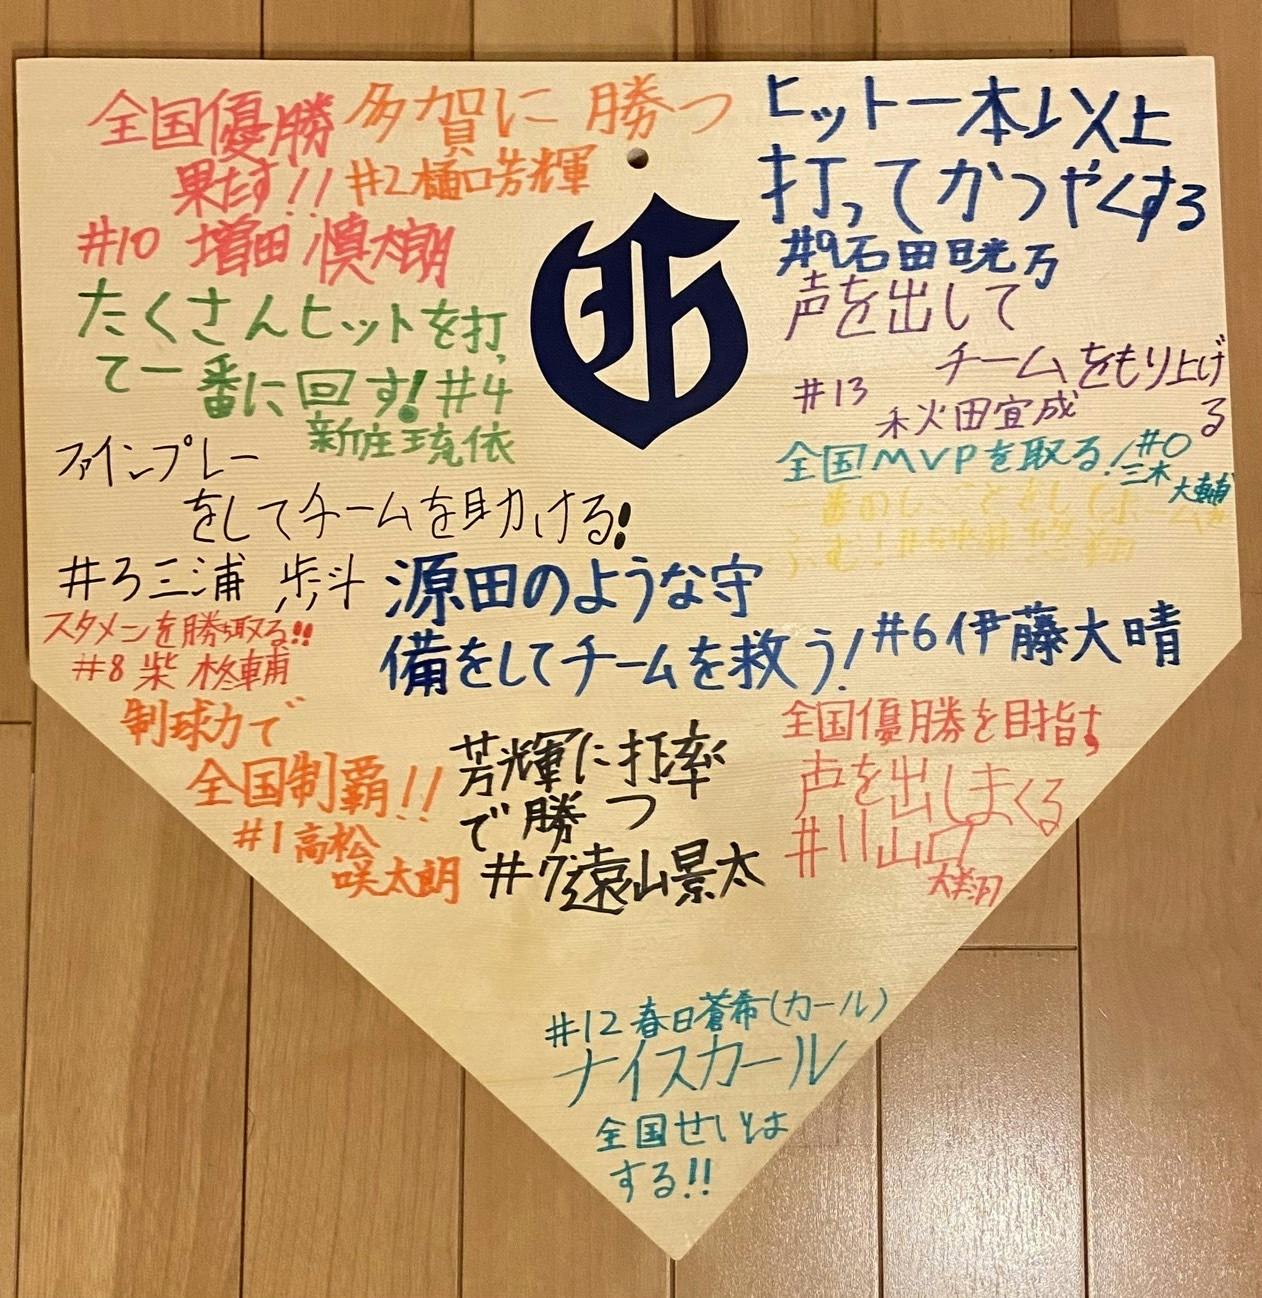 全国優勝
果たす!!
#10 増田 慎太朗
多賀に 勝つ
#2樋口芳輝
ヒット一本以上
打ってかつやくする
#9石田日光万
たくさんヒットを打っ
て一番に回す!#4
新庄琉依
G
声を出して
チームをもり上げ
る
#13 秋田宜成
全国MVPを取る!#0
三木
大輔
ファインプレー
をしてチームを助ける!
#3三浦 歩斗
源田のような守
備をしてチームを救う!#6伊藤大晴
スタメンを勝ち取る!!
#8 柴 柊輔
制球力で
全国制覇!!
#1高松
咲太朗
芳輝に打率
で勝つ
#7遠山景太
全国優勝を目指す
声を出しまくる
#11山口
大翔
#12 春日蒼希(カール)
ナイスカール
全国せいは
する!!